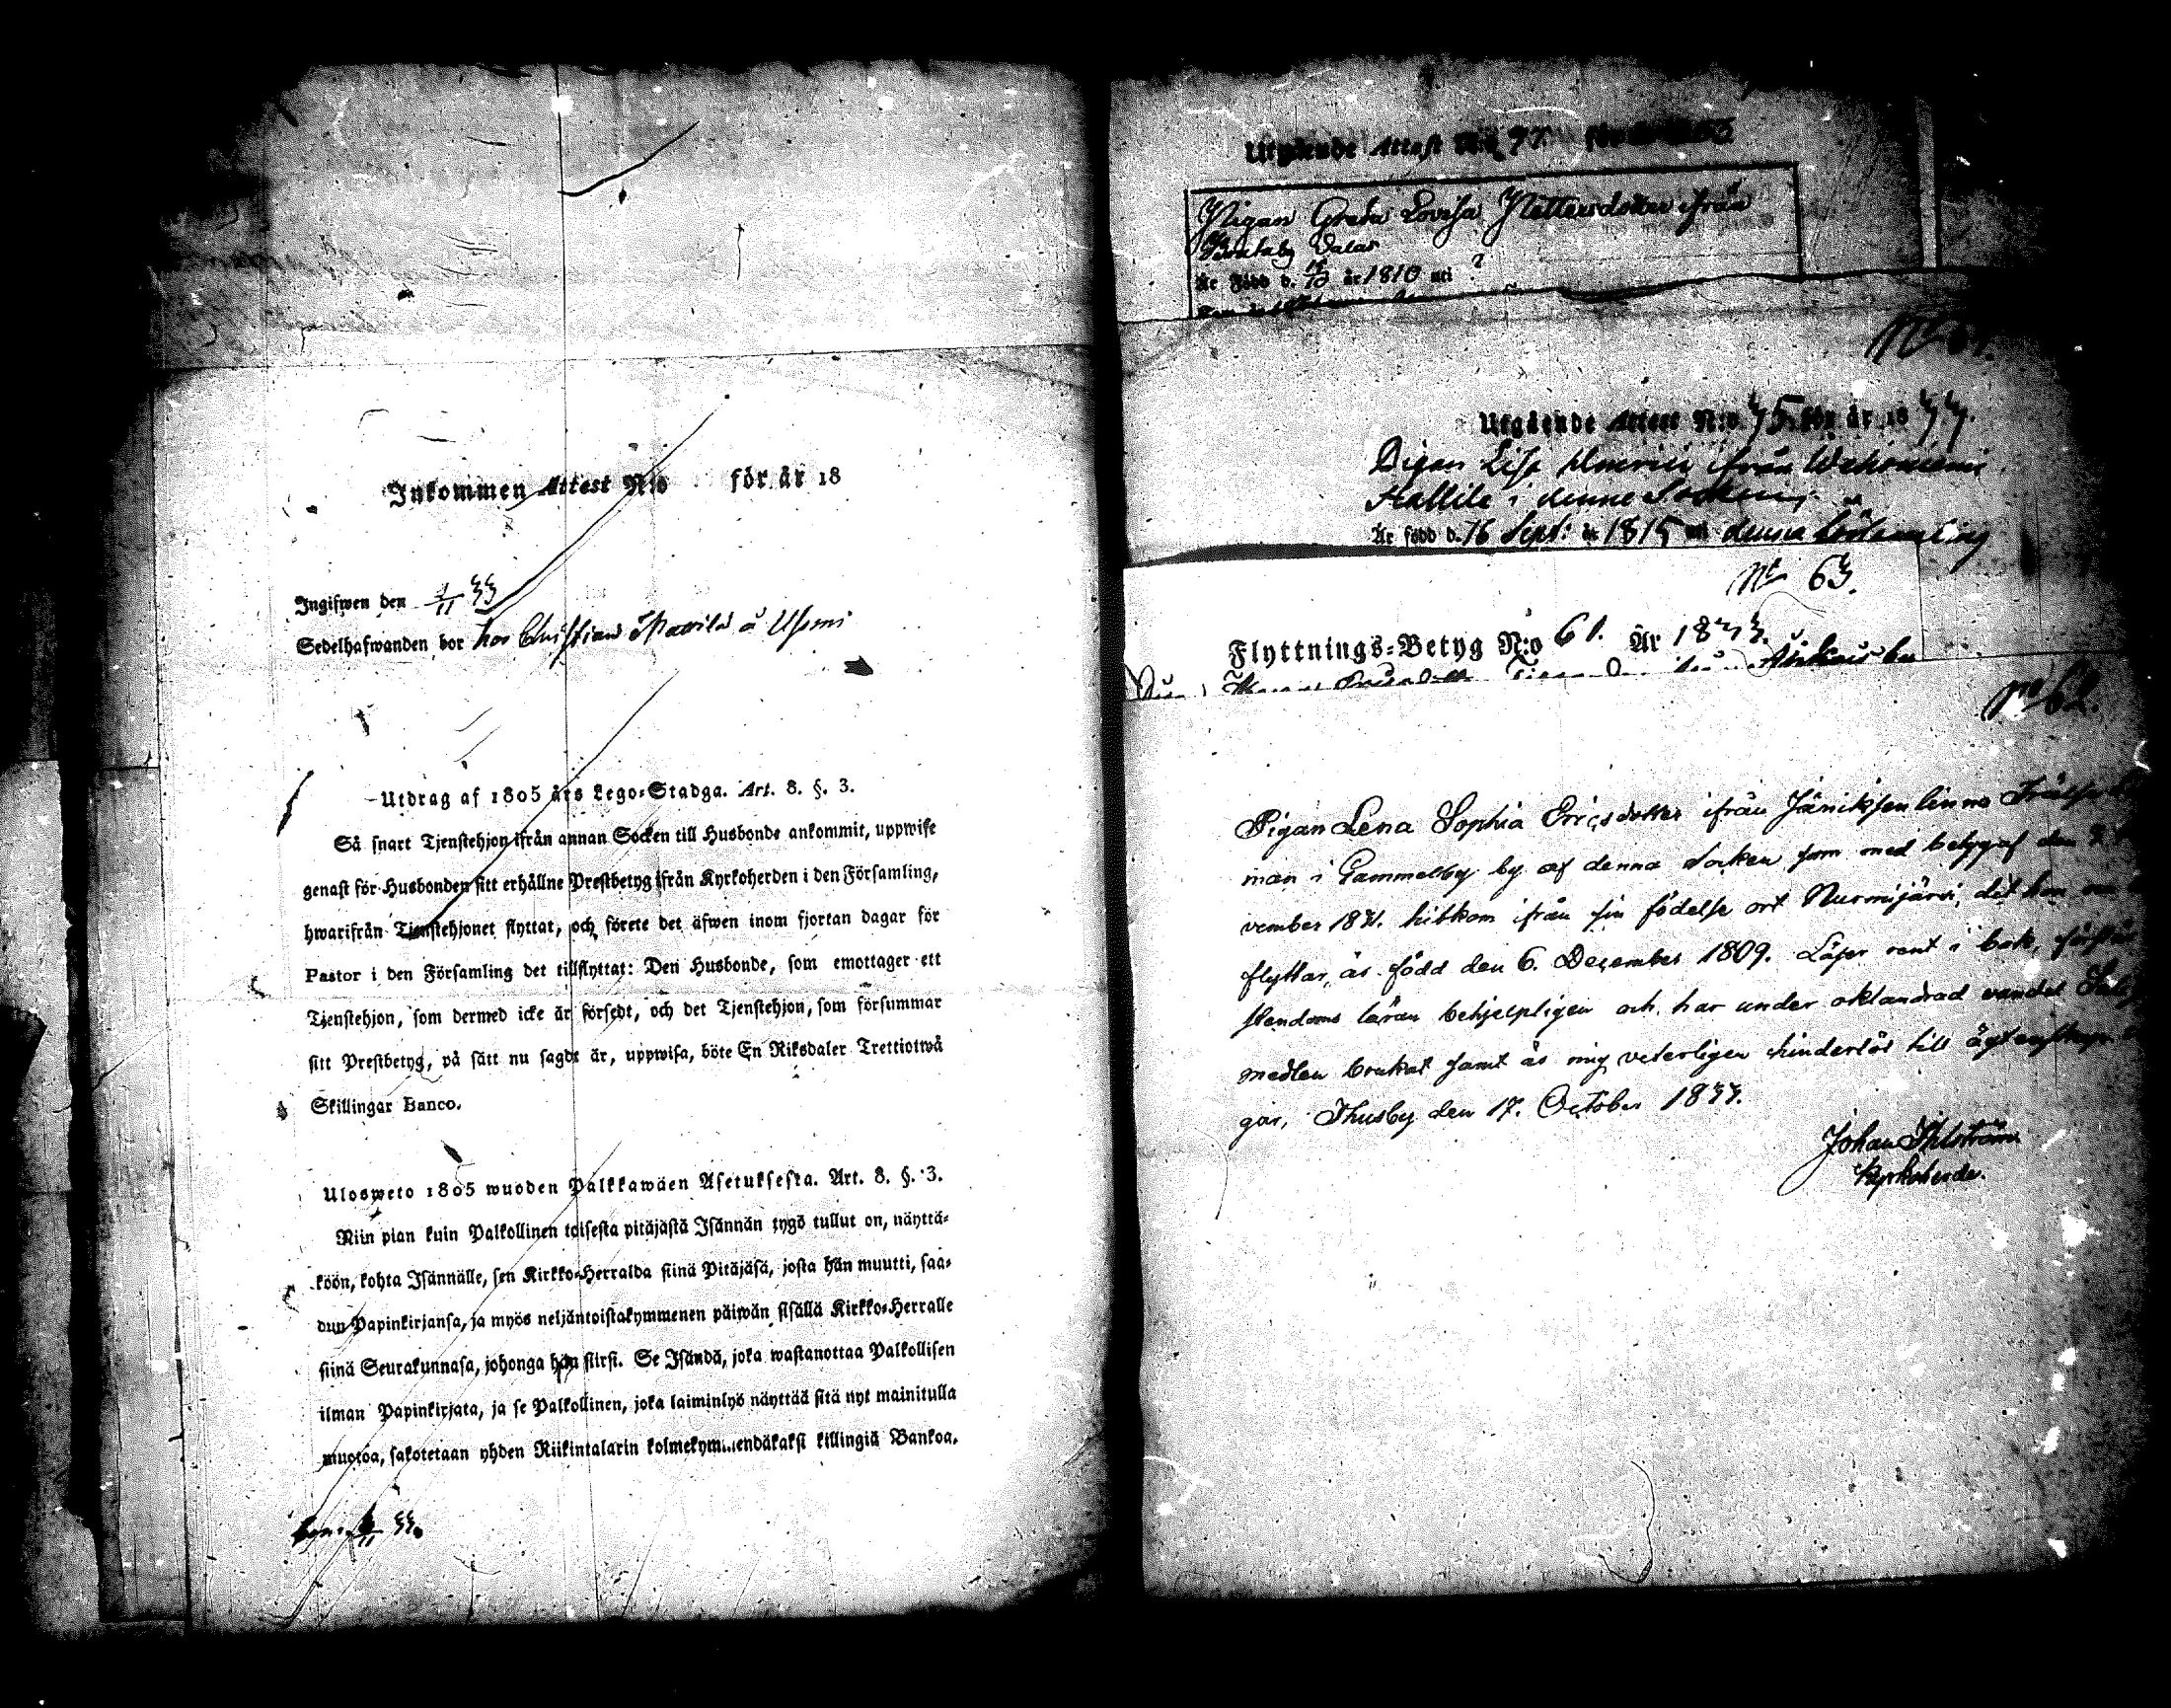 Inkommen Attest N:o för år 18
Ingifwen den 1/11 33
Sedelhafwanden bor hos Christian
Utdrag af 1805 års Lego-Stadga. Art. 8. §. 3.
Så snart Tjenstehjon ifrån annan Socken till Husbonde ankommit, uppwise
genast för Husbonden sitt erhållne Prestbetyg ifrån Kyrkoherden i den Församling,
hwarifrån Tjenstehjonet flyttat, och förete det äfwen inom fjortan dagar för
Pastor i den Församling det tillflyttat: Den Husbonde, som emottager ett
Tjenstehjon, som dermed icke är försedt, och det Tjenstehjon, som försummar
sitt Prestbetyg, på sätt nu sagdt är, uppwisa, böte En Riksdaler Trettiotwå
Skillingar Banco.
Ulosweto 1805 wuoden Palkkawäen Asetuksesta. Art. 8. §. 3.
Niin pian kuin Palkollinen toisesta pitäjästä Isännän tygö tullut on, näyttä-
köön, kohta Isännälle, sen Kirkko-Herralda siinä Pitäjäsä, josta hän muutti, saa-
dun Papinkirjansa, ja myös neljäntoistakymmenen päiwän sisällä Kirkko-Herralle
siinä Seurakunnasa, johonga hän siirsi. Se Isändä, joka wastanottaa Palkollisen
ilman Papinkirjata, ja se Palkollinen, joka laiminlyö näyttää sitä nyt mainitulla
muotoa, sakotetaan yhden Riikintalarin kolmekymmendäkaksi killingiä Bankoa.
Utgående Attest N:o 77. för
Pigan Greta Lovisa Pettersdotter ifrån
Är Född d. 15/10 år 1810 uti ?
Utgående Attest N:o 75 för år 1833.
Pigan Lisa Henrici ifrån
i denne Socken
Är född d. 16 Sept: år 1815 uti denna församling
No 63.
Flyttnings-Betyg N:o 61. År 1833.
No 62.
Pigan Lena Sophia Ericsdotter ifrån Jäniksenlinna Frälse
man i Gammelby by af denna Socken som med betyg af den
vember 1831. hitkom ifrån sin födelse ort Nurmijärvi, dit hon nu
flyttar, är född den 6. December 1809. Läser rent i bok, förstår
stendoms läran behjelpligen och har under oklandrad vandel Salig
medlen brukat samt är mig veterligen hinderlös till ägtenskaps
gar, Thusby den 17. October 1833.
Johan
Kyrkoherde.